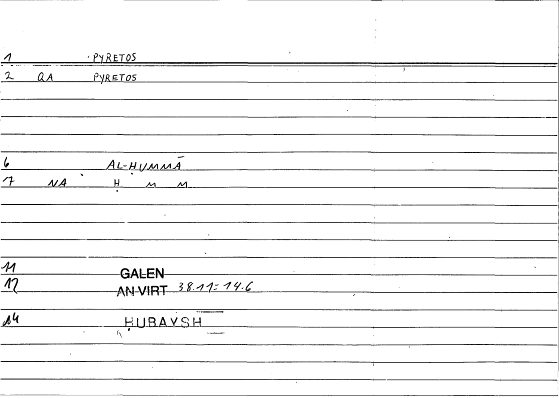 1 PYRETOS
2 QA PYRETOS
6 AL-ḤUMMĀ
7 NA Ḥ M M
11 GALEN
12 AN VIRT 38.11 = 14.6
14 ḤUBAYSH